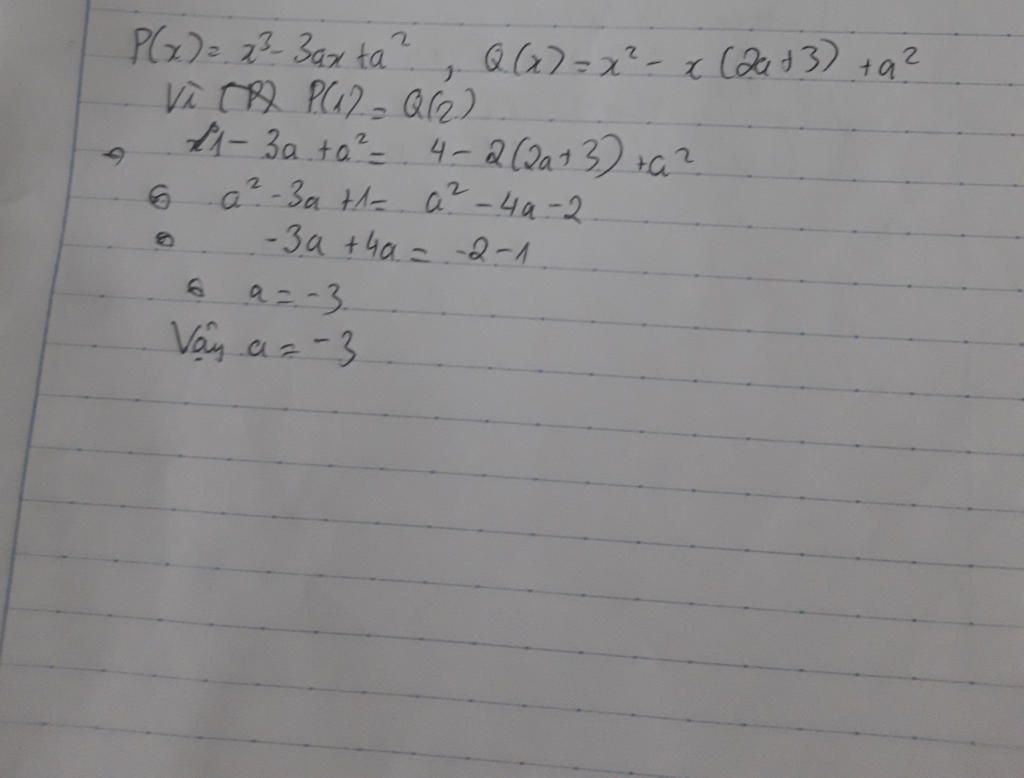 P(x) = x³ - 3ax + a² , Q(x) = x² - x(2a+3) + a²
Vì P(1) = Q(2)
⇒ 1 - 3a + a² = 4 - 2(2a+3) + a²
⇔ a² - 3a + 1 = a² - 4a - 2
⇔ -3a + 4a = -2 - 1
⇔ a = -3
Vậy a = -3